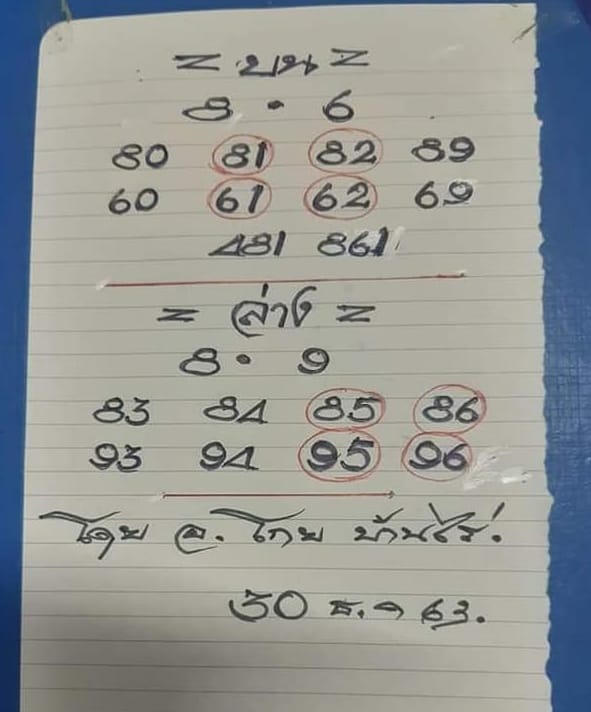 = บน =
8 • 6
80 81 82 89
60 61 62 69
481 861
= ล่าง =
8 • 9
83 84 85 86
93 94 95 96
โดย อ. โกย บ้านไร่.
30 ธ.ค 63.